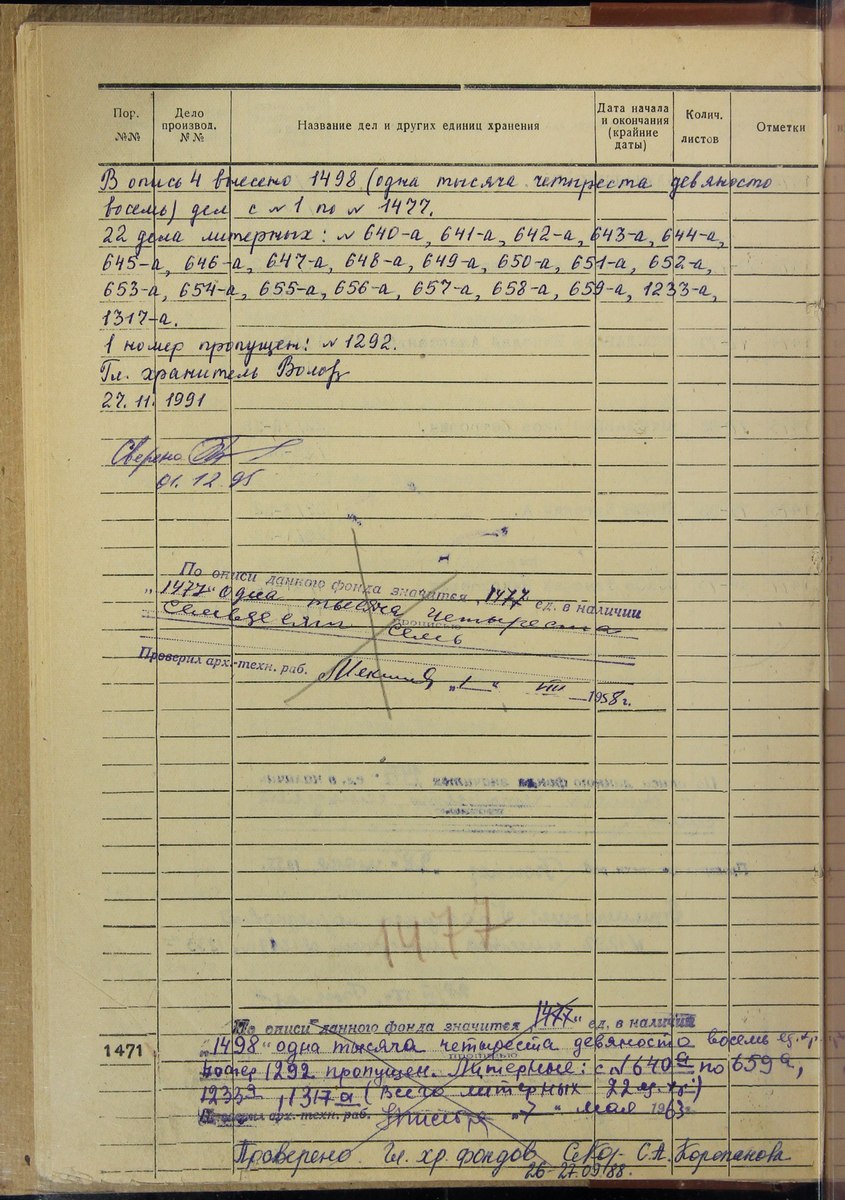 Пор. №№
Дело производ. №№
Название дел и других единиц хранения
Дата начала и окончания (крайние даты)
Колич. листов
Отметки
В опись 4 внесено 1498 (одна тысяча четыреста девяносто
восемь) дел с №1 по № 1477.
22 дела литерных: № 640-а, 641-а, 642-а, 643-а, 644-а,
645-а, 646-а, 647-а, 648-а, 649-а, 650-а, 651-а, 652-а,
653-а, 654-а, 655-а, 656-а, 657-а, 658-а, 659-а, 1233-а,
1317-а.
1 номер пропущен: № 1292.
Гл. хранитель
27.11.1991
Сверено
01.12.95
По описи данного фонда значится 1477 ед. в наличии
"1477" одна тысяча четыреста
прописью
семьдесят семь
Проверил арх.-техн. раб. "1" VIII 1958 г.
1477
По описи данного фонда значится "1477" ед. в наличии
1471
"1498" одна тысяча четыреста девяносто восемь ед. хр.
прописью
Номер 1292 пропущен. Литерные: с № 640а по 659а,
1233а, 1317а (Всего литерных 22 ед. хр.)
Проверил арх.-техн. раб. "7" мая 1963г.
Проверено. Гл. хр. фондов С.А. Коропанова
26-27.09.88.